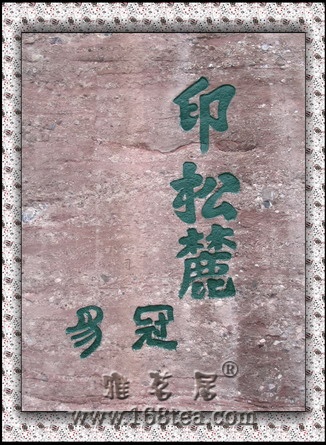 印松麓
冠豸
雅茗居®
www.168tea.com